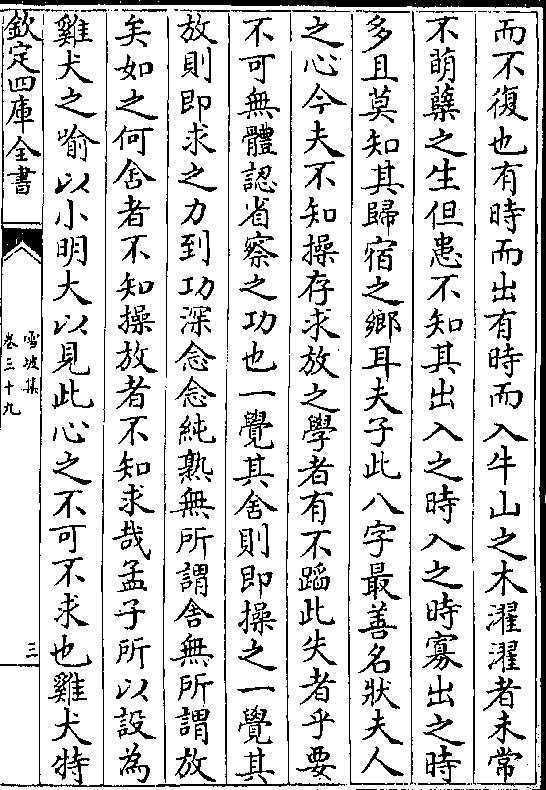 而不復也有時而出有時而入牛山之木濯濯者未常
不萌蘖之生但患不知其出入之時入之時寡出之時
多且莫知其歸宿之鄉耳夫子此八字最善名狀夫人
之心今夫不知操存求放之學者有不蹈此失者乎要
不可無體認省察之功也一覺其舍則即操之一覺其
放則即求之力到功深念念純熟無所謂舍無所謂放
矣如之何舍者不知操放者不知求哉孟子所以設為
雞犬之喻以小明大以見此心之不可不求也雞犬特
欽定四庫全書
雪坡集
卷三十九
三